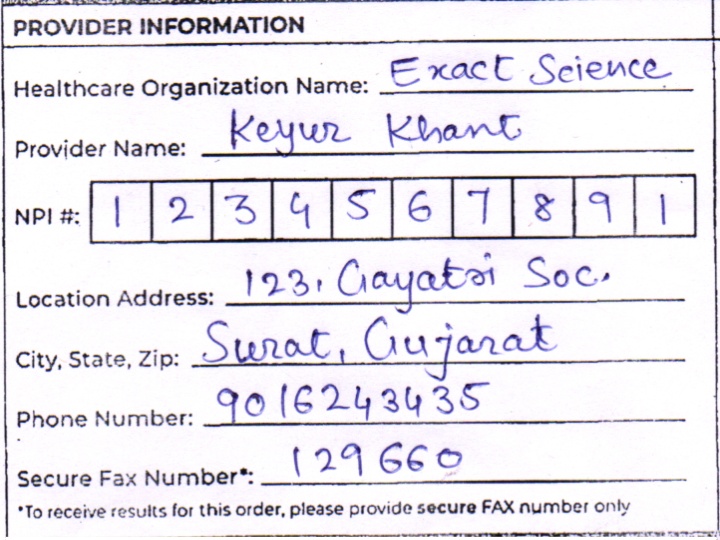 PROVIDER INFORMATION
Healthcare Organization Name: Exact Science
Provider Name: Keyur Khant
NPI #: 1 2 3 4 5 6 7 8 9 1
Location Address: 123, Gayatri Soc.
City, State, Zip: Surat, Gujarat
Phone Number: 9016243435
Secure Fax Number*: 129660
*To receive results for this order, please provide secure FAX number only